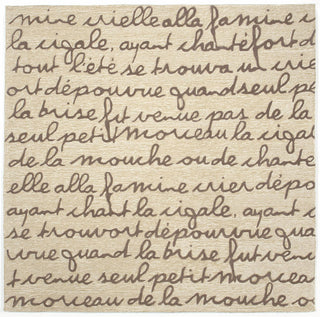 mine crielle alla famine c
la cigale, ayant chanté fort d
tout l'été se trouva un crie
ort dépourvue quand seul pe
la brise fut venue pas de la
seul petit morceau la cigal
de la mouche ou de chante
elle alla famine crier dépo
ayant chant la cigale, ayant c
se trouvort dépourvue qua
vue quand la brise fut venu
t venue seul petit morcea
morceau de la mouche o